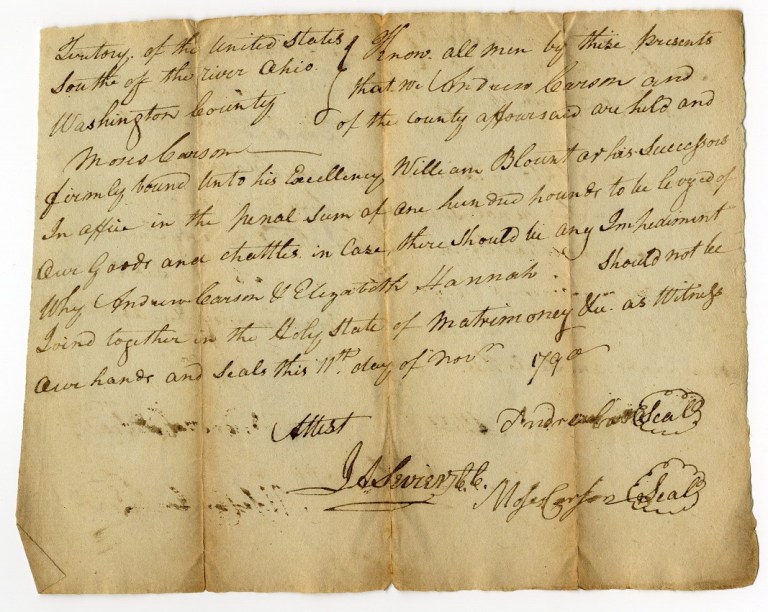 Teritory of the United States
South of the river Ohio.
Washington County
Know all men by these Presents
that we Andrew Carson and
Moses Carson
of the County afforsaid are held and
firmly bound unto his Excellency William Blount or his Successors
In office in the penal Sum of one hundred pounds to be levyed of
our Goods and chattles in Case there should be any Impediment
Why Andrew Carson & Elizabeth Hannah should not be
Joind together in the Holy State of Matrimoney &c. as Witness
our hands and Seals this 11th day of Novr 1790
Attest
Andrew Carson Seal
JA Sevier C.C.
Moses Carson Seal